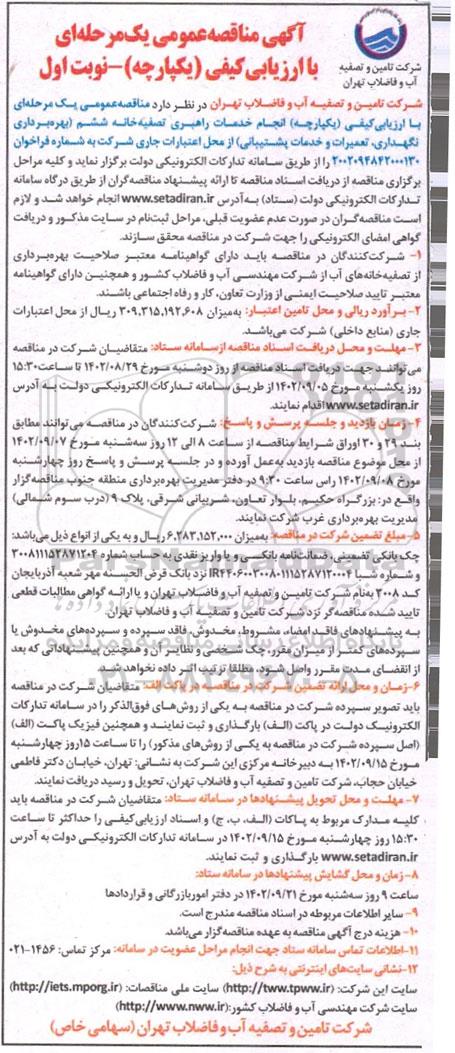 آگهی مناقصه عمومی یک مرحله‌ای
با ارزیابی کیفی (یکپارچه)-نوبت اول
شرکت تامین و تصفیه
آب و فاضلاب تهران
شرکت تامین و تصفیه آب و فاضلاب تهران در نظر دارد مناقصه عمومی یک مرحله‌ای
با ارزیابی کیفی (یکپارچه) انجام خدمات راهبری تصفیه‌خانه ششم (بهره‌برداری
نگهداری، تعمیرات و خدمات پشتیبانی) از محل اعتبارات جاری شرکت به شماره فراخوان
۲۰۰۲۰۹۴۸۴۲۰۰۰۱۳۰ را از طریق سامانه تدارکات الکترونیکی دولت برگزار نماید و کلیه مراحل
برگزاری مناقصه از دریافت اسناد مناقصه تا ارائه پیشنهاد مناقصه‌گران از طریق درگاه سامانه
تدارکات الکترونیکی دولت (ستاد) به‌آدرس www.setadiran.ir انجام خواهد شد و لازم
است مناقصه‌گران در صورت عدم عضویت قبلی، مراحل ثبت‌نام در سایت مذکور و دریافت
گواهی امضای الکترونیکی را جهت شرکت در مناقصه محقق سازند.
۱- شرکت‌کنندگان در مناقصه باید دارای گواهینامه معتبر صلاحیت بهره‌برداری
از تصفیه‌خانه‌های آب از شرکت مهندسی آب و فاضلاب کشور و همچنین دارای گواهینامه
معتبر تایید صلاحیت ایمنی از وزارت تعاون، کار و رفاه اجتماعی باشند.
۲- برآورد ریالی و محل تامین اعتبار: به‌میزان ۳۰۹,۳۱۵,۱۹۲,۶۰۸ ریال از محل اعتبارات
جاری (منابع داخلی) شرکت می‌باشد.
۳- مهلت و محل دریافت اسناد مناقصه از سامانه ستاد: متقاضیان شرکت در مناقصه
می‌توانند جهت دریافت اسناد مناقصه از روز دوشنبه مورخ ۱۴۰۲/۰۸/۲۹ تا ساعت ۱۵:۳۰
روز یکشنبه مورخ ۱۴۰۲/۰۹/۰۵ از طریق سامانه تدارکات الکترونیکی دولت به آدرس
www.setadiran.ir اقدام نمایند.
۴- زمان بازدید و جلسه پرسش و پاسخ: شرکت‌کنندگان در مناقصه می‌توانند مطابق
بند ۲۹ و ۳۰ اوراق شرایط مناقصه از ساعت ۸ الی ۱۲ روز سه‌شنبه مورخ ۱۴۰۲/۰۹/۰۷
از محل موضوع مناقصه بازدید به‌عمل آورده و در جلسه پرسش و پاسخ روز چهارشنبه
مورخ ۱۴۰۲/۰۹/۰۸ راس ساعت ۹:۳۰ در دفتر مدیریت بهره‌برداری منطقه جنوب مناقصه‌گزار
واقع در: بزرگراه حکیم، بلوار تعاون، شربیانی شرقی، پلاک ۹ (درب سوم شمالی)
مدیریت بهره‌برداری غرب شرکت نمایند.
۵- مبلغ تضمین شرکت در مناقصه: به‌میزان ۶,۲۸۳,۱۵۲,۰۰۰ ریال و به یکی از انواع ذیل می‌باشد:
چک بانکی تضمینی، ضمانت‌نامه بانکی و یا واریز نقدی به حساب شماره ۳۰۰۸۱۱۱۵۲۸۷۱۲۰۴
و شماره شبا IR۴۴۰۶۰۰۳۰۰۸۰۱۱۱۵۲۸۷۱۲۰۰۴ نزد بانک قرض الحسنه مهر شعبه آذربایجان
کد ۳۰۰۸ به‌نام شرکت تامین و تصفیه آب و فاضلاب تهران و یا ارائه گواهی مطالبات قطعی
تایید شده مناقصه‌گر نزد شرکت تامین و تصفیه آب و فاضلاب تهران.
به پیشنهادهای فاقد امضاء، مشروط، مخدوش، فاقد سپرده و سپرده‌های مخدوش یا
سپرده‌های کمتر از میزان مقرر، چک شخصی و نظایر آن و همچنین پیشنهاداتی که بعد
از انقضای مدت مقرر واصل شود، مطلقا ترتیب اثر داده نخواهد شد.
۶- زمان و محل ارائه تضمین شرکت در مناقصه در پاکت الف: متقاضیان شرکت در مناقصه
باید تصویر سپرده شرکت در مناقصه به یکی از روش‌های فوق‌الذکر را در سامانه تدارکات
الکترونیک دولت در پاکت (الف) بارگذاری و ثبت نمایند و همچنین فیزیک پاکت (الف)
(اصل سپرده شرکت در مناقصه به یکی از روش‌های مذکور) را تا ساعت ۱۵ روز چهارشنبه
مورخ ۱۴۰۲/۰۹/۱۵ به دبیرخانه مرکزی این شرکت به نشانی: تهران، خیابان دکتر فاطمی
خیابان حجاب، شرکت تامین و تصفیه آب و فاضلاب تهران، تحویل و رسید دریافت نمایند.
۷- مهلت و محل تحویل پیشنهادها در سامانه ستاد: متقاضیان شرکت در مناقصه باید
کلیه مدارک مربوط به پاکات (الف، ب، ج) و اسناد ارزیابی کیفی را حداکثر تا ساعت
۱۵:۳۰ روز چهارشنبه مورخ ۱۴۰۲/۰۹/۱۵ در سامانه تدارکات الکترونیکی دولت به آدرس
www.setadiran.ir بارگذاری و ثبت نمایند.
۸- زمان و محل گشایش پیشنهادها در سامانه ستاد:
ساعت ۹ روز سه‌شنبه مورخ ۱۴۰۲/۰۹/۲۱ در دفتر امور بازرگانی و قراردادها
۹- سایر اطلاعات مربوطه در اسناد مناقصه مندرج است.
۱۰- هزینه درج آگهی مناقصه به عهده مناقصه‌گزار می‌باشد.
۱۱- اطلاعات تماس سامانه ستاد جهت انجام مراحل عضویت در سامانه: مرکز تماس: ۱۴۵۶-۰۲۱
۱۲- نشانی سایت‌های اینترنتی به شرح ذیل:
سایت این شرکت: (http://tww.tpww.ir) سایت ملی مناقصات: (http://iets.mporg.ir)
سایت شرکت مهندسی آب و فاضلاب کشور: (http://www.nww.ir)
شرکت تامین و تصفیه آب و فاضلاب تهران (سهامی خاص)
ParsNamadData
۰۲۱-۸۸۳۴۹۶۷۰-۵